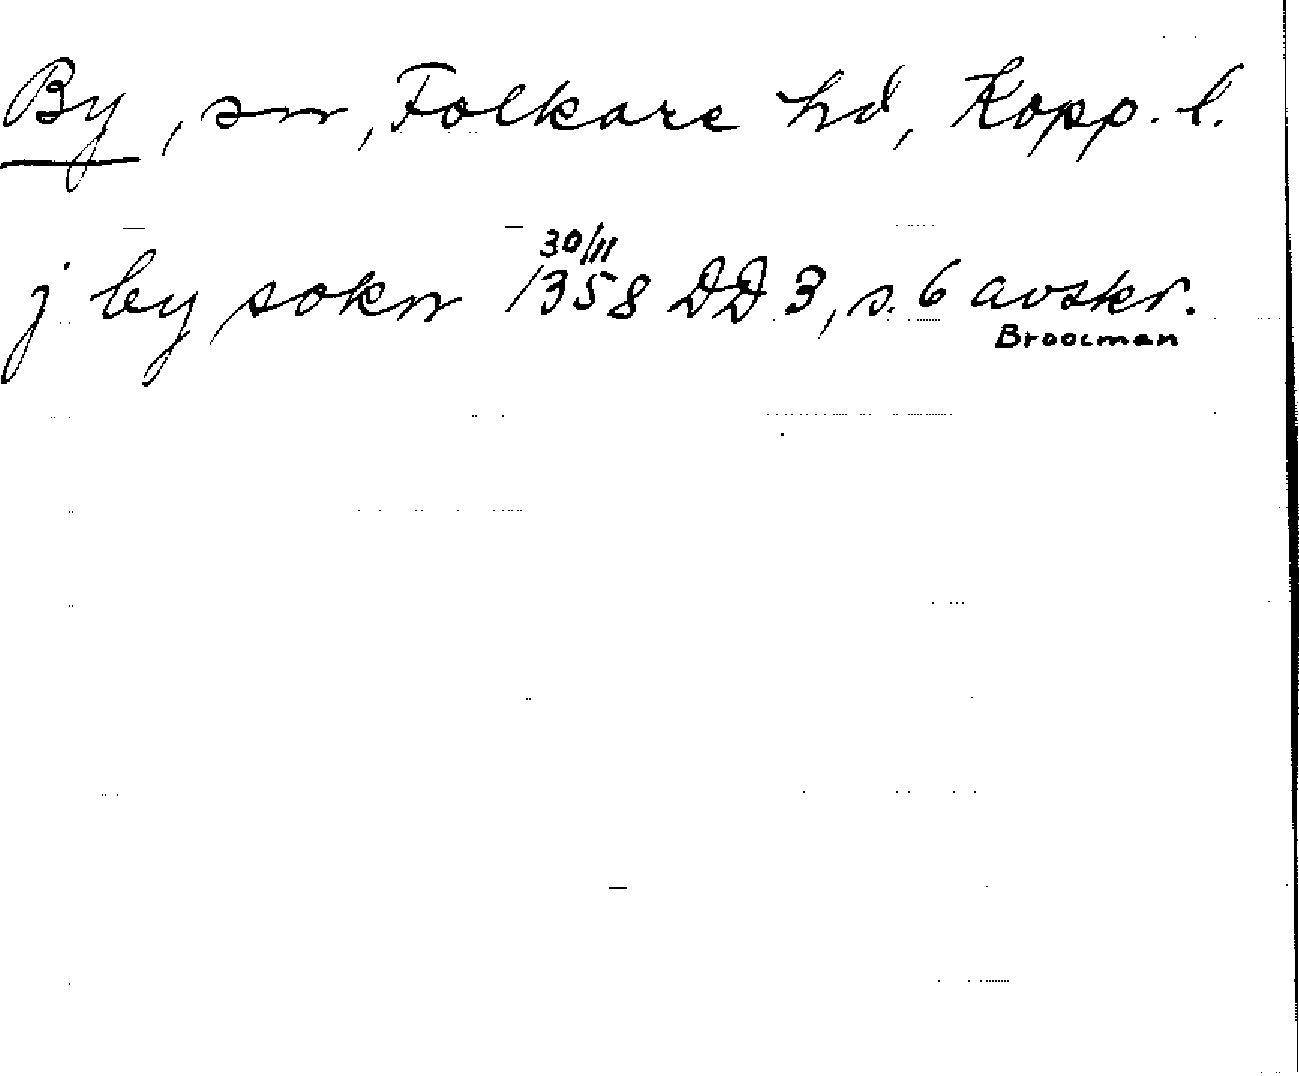 By, sn, Folkare hd, Kopp. l.
j by sokn 30/11 1358 DD 3, s. 6 avskr.
Broocman